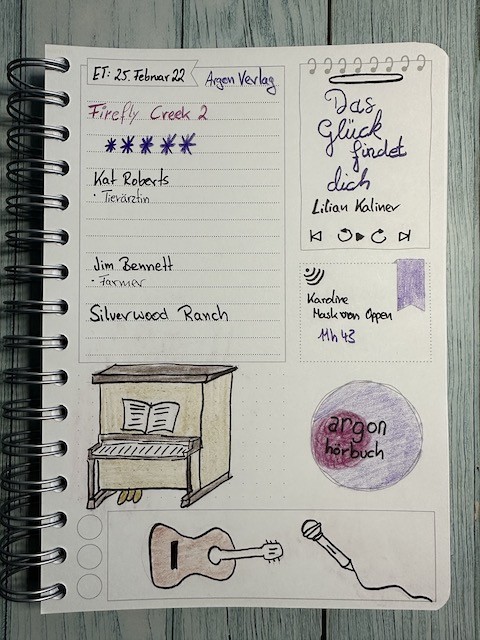 ET: 25. Februar 22
Argon Verlag
Firefly Creek 2
Kat Roberts
• Tierärztin
Jim Bennett
• Farmer
Silverwood Ranch
Das
Glück
findet
dich
Lilian Kaliner
Karoline
Mask von Oppen
11h 43
argon
hörbuch